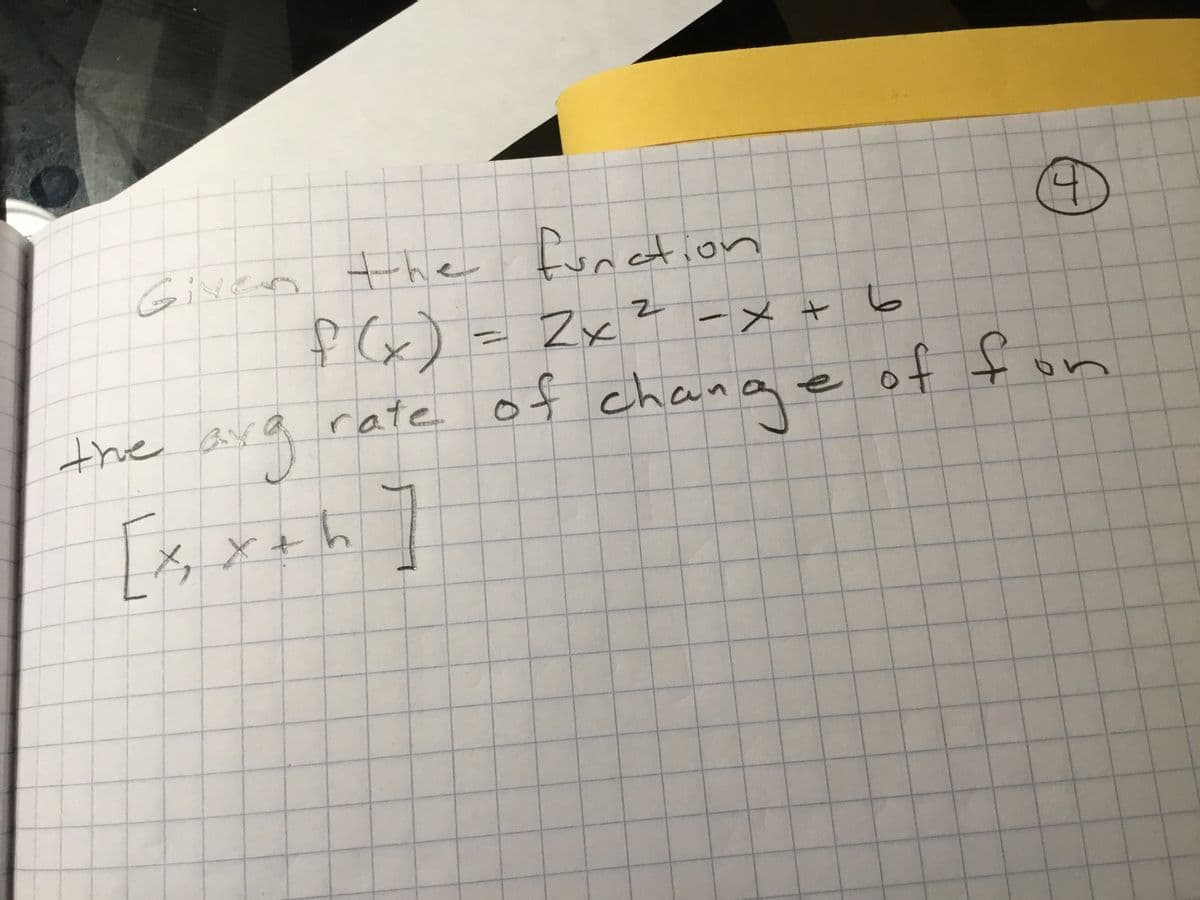 4
Given the function
f(x) = 2x² - x + 6
the avg rate of change of f on
[x, x+h]